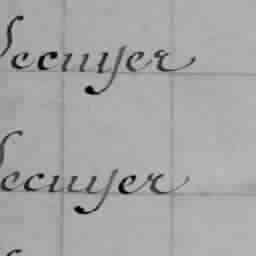 Secuyer
Secuyer